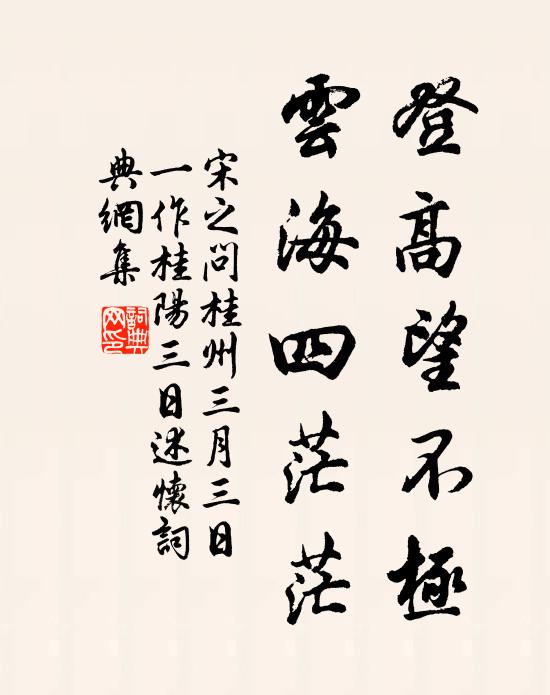 登高望不極
雲海四茫茫
宋之問桂州三月三日
一作桂陽三日述懷詞
典網集
詞典
网印